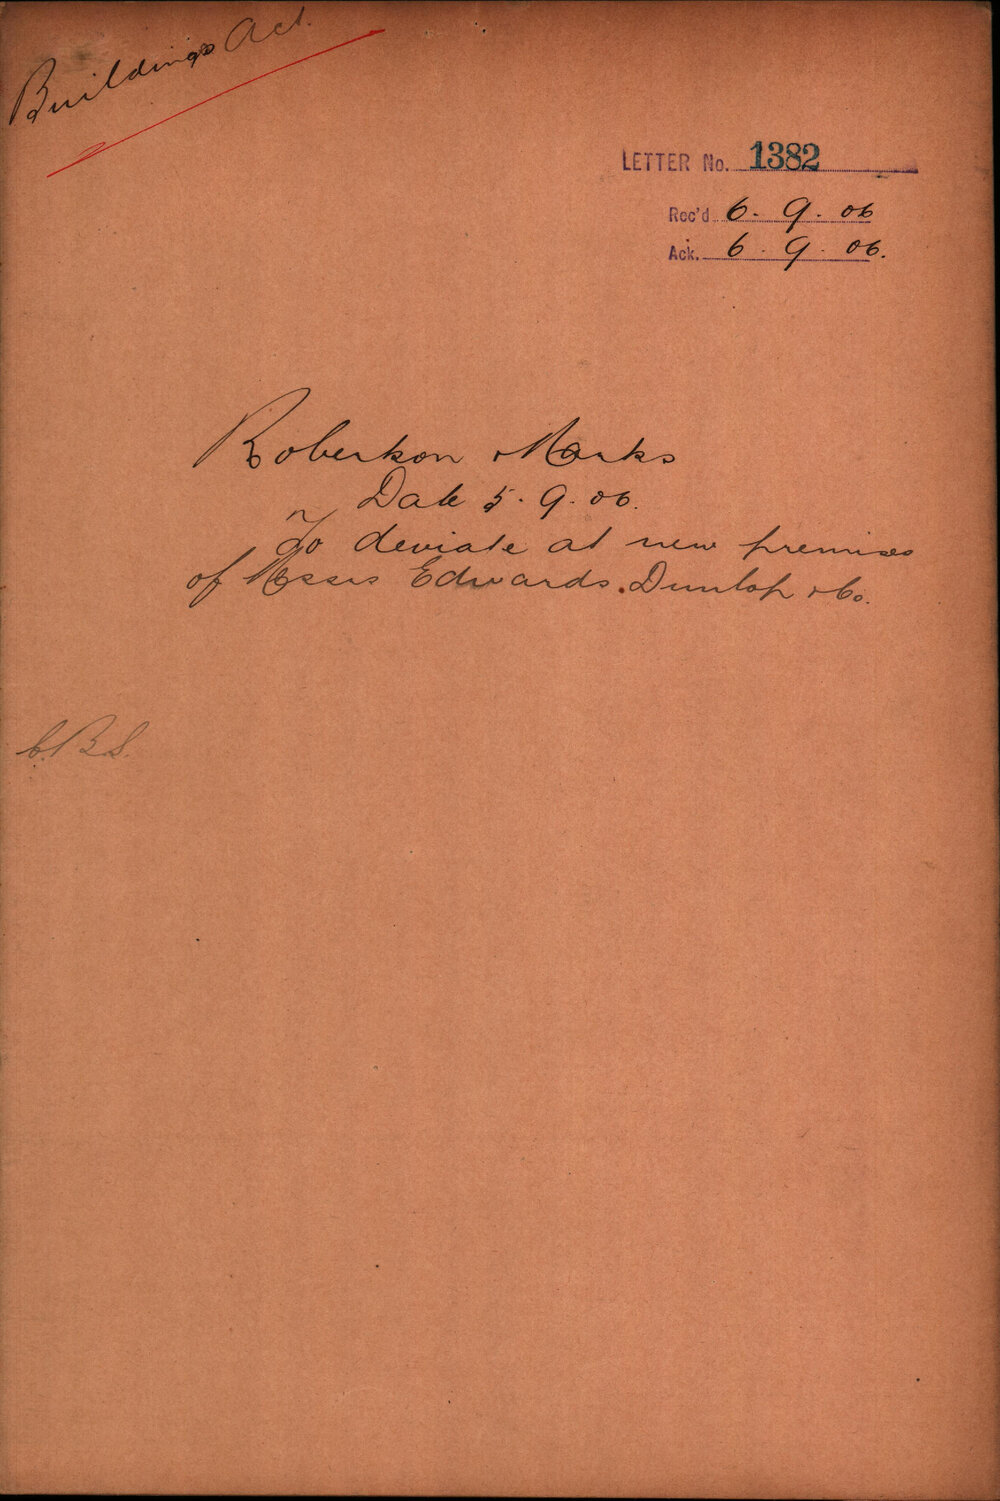 Buildings Act.
LETTER No. 1382
Rec'd 6. 9. 06
Ack. 6. 9. 06.
Robertson & Marks
Date 5. 9. 06.
To deviate at new premises
of Messrs Edwards. Dunlop & Co.
C.B.S.